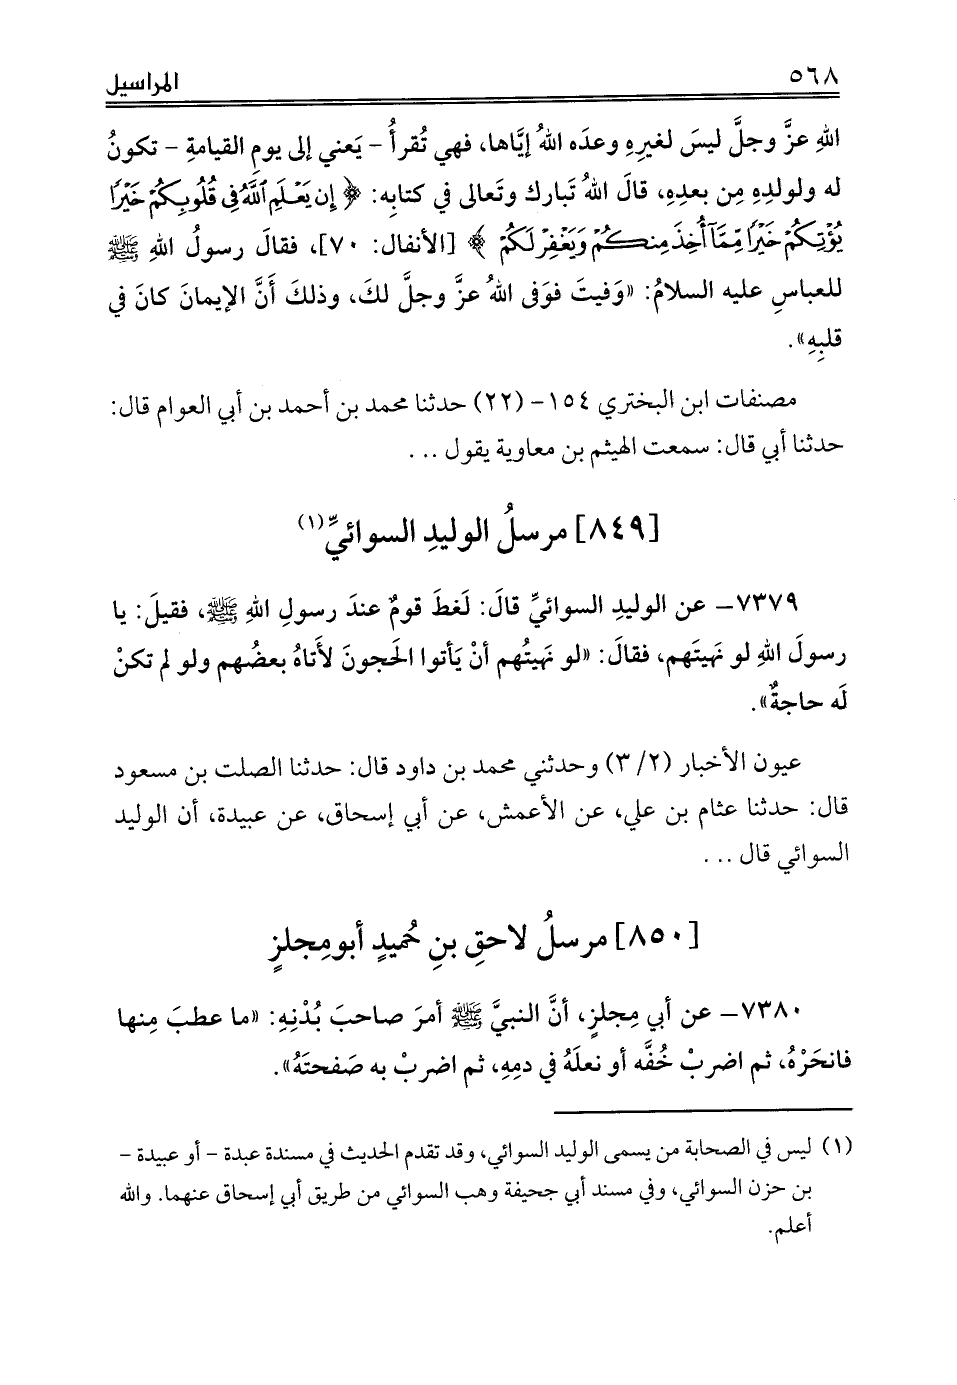 ٥٦٨ المراسيل
اللهِ عزَّ وجلَّ ليسَ لغيرِهِ وعدَه اللهُ إيَّاها، فهي تُقرأُ - يَعني إلى يومِ القيامةِ - تكونُ
له ولولدِهِ مِن بعدِهِ، قالَ اللهُ تَبارك وتَعالى في كتابِه: ﴿إِن يَعْلَمِ ٱللَّهُ فِى قُلُوبِكُمْ خَيْرًا
يُؤْتِكُمْ خَيْرًا مِّمَّآ أُخِذَ مِنكُمْ وَيَغْفِرْ لَكُمْ﴾ [الأنفال: ٧٠]، فقالَ رسولُ اللهِ ﷺ
للعباسِ عليه السلامُ: «وَفيتَ فوَفى اللهُ عزَّ وجلَّ لكَ، وذلكَ أنَّ الإيمانَ كانَ في
قلبِهِ».
مصنفات ابن البختري ١٥٤- (٢٢) حدثنا محمد بن أحمد بن أبي العوام قال:
حدثنا أبي قال: سمعت الهيثم بن معاوية يقول ...
[٨٤٩] مرسلُ الوليدِ السوائيِّ(١)
٧٣٧٩- عن الوليدِ السوائيِّ قالَ: لَغطَ قومٌ عندَ رسولِ اللهِ ﷺ، فقيلَ: يا
رسولَ اللهِ لو نهَيتَهم، فقالَ: «لو نهَيتُهم أنْ يَأتوا الحَجونَ لأَتاهُ بعضُهم ولو لم تكنْ
لَه حاجةٌ».
عيون الأخبار (٢/ ٣) وحدثني محمد بن داود قال: حدثنا الصلت بن مسعود
قال: حدثنا عثام بن علي، عن الأعمش، عن أبي إسحاق، عن عبيدة، أن الوليد
السوائي قال ...
[٨٥٠] مرسلُ لاحقِ بنِ حُميدٍ أبو مِجلزٍ
٧٣٨٠- عن أبي مِجلزٍ، أنَّ النبيَّ ﷺ أمرَ صاحبَ بُدْنِهِ: «ما عطبَ مِنها
فانحَرْهُ، ثم اضربْ خُفَّه أو نعلَهُ في دمِهِ، ثم اضربْ به صَفحتَهُ».
(١) ليس في الصحابة من يسمى الوليد السوائي، وقد تقدم الحديث في مسندة عبدة - أو عبيدة -
بن حزن السوائي، وفي مسند أبي جحيفة وهب السوائي من طريق أبي إسحاق عنهما. والله
أعلم.